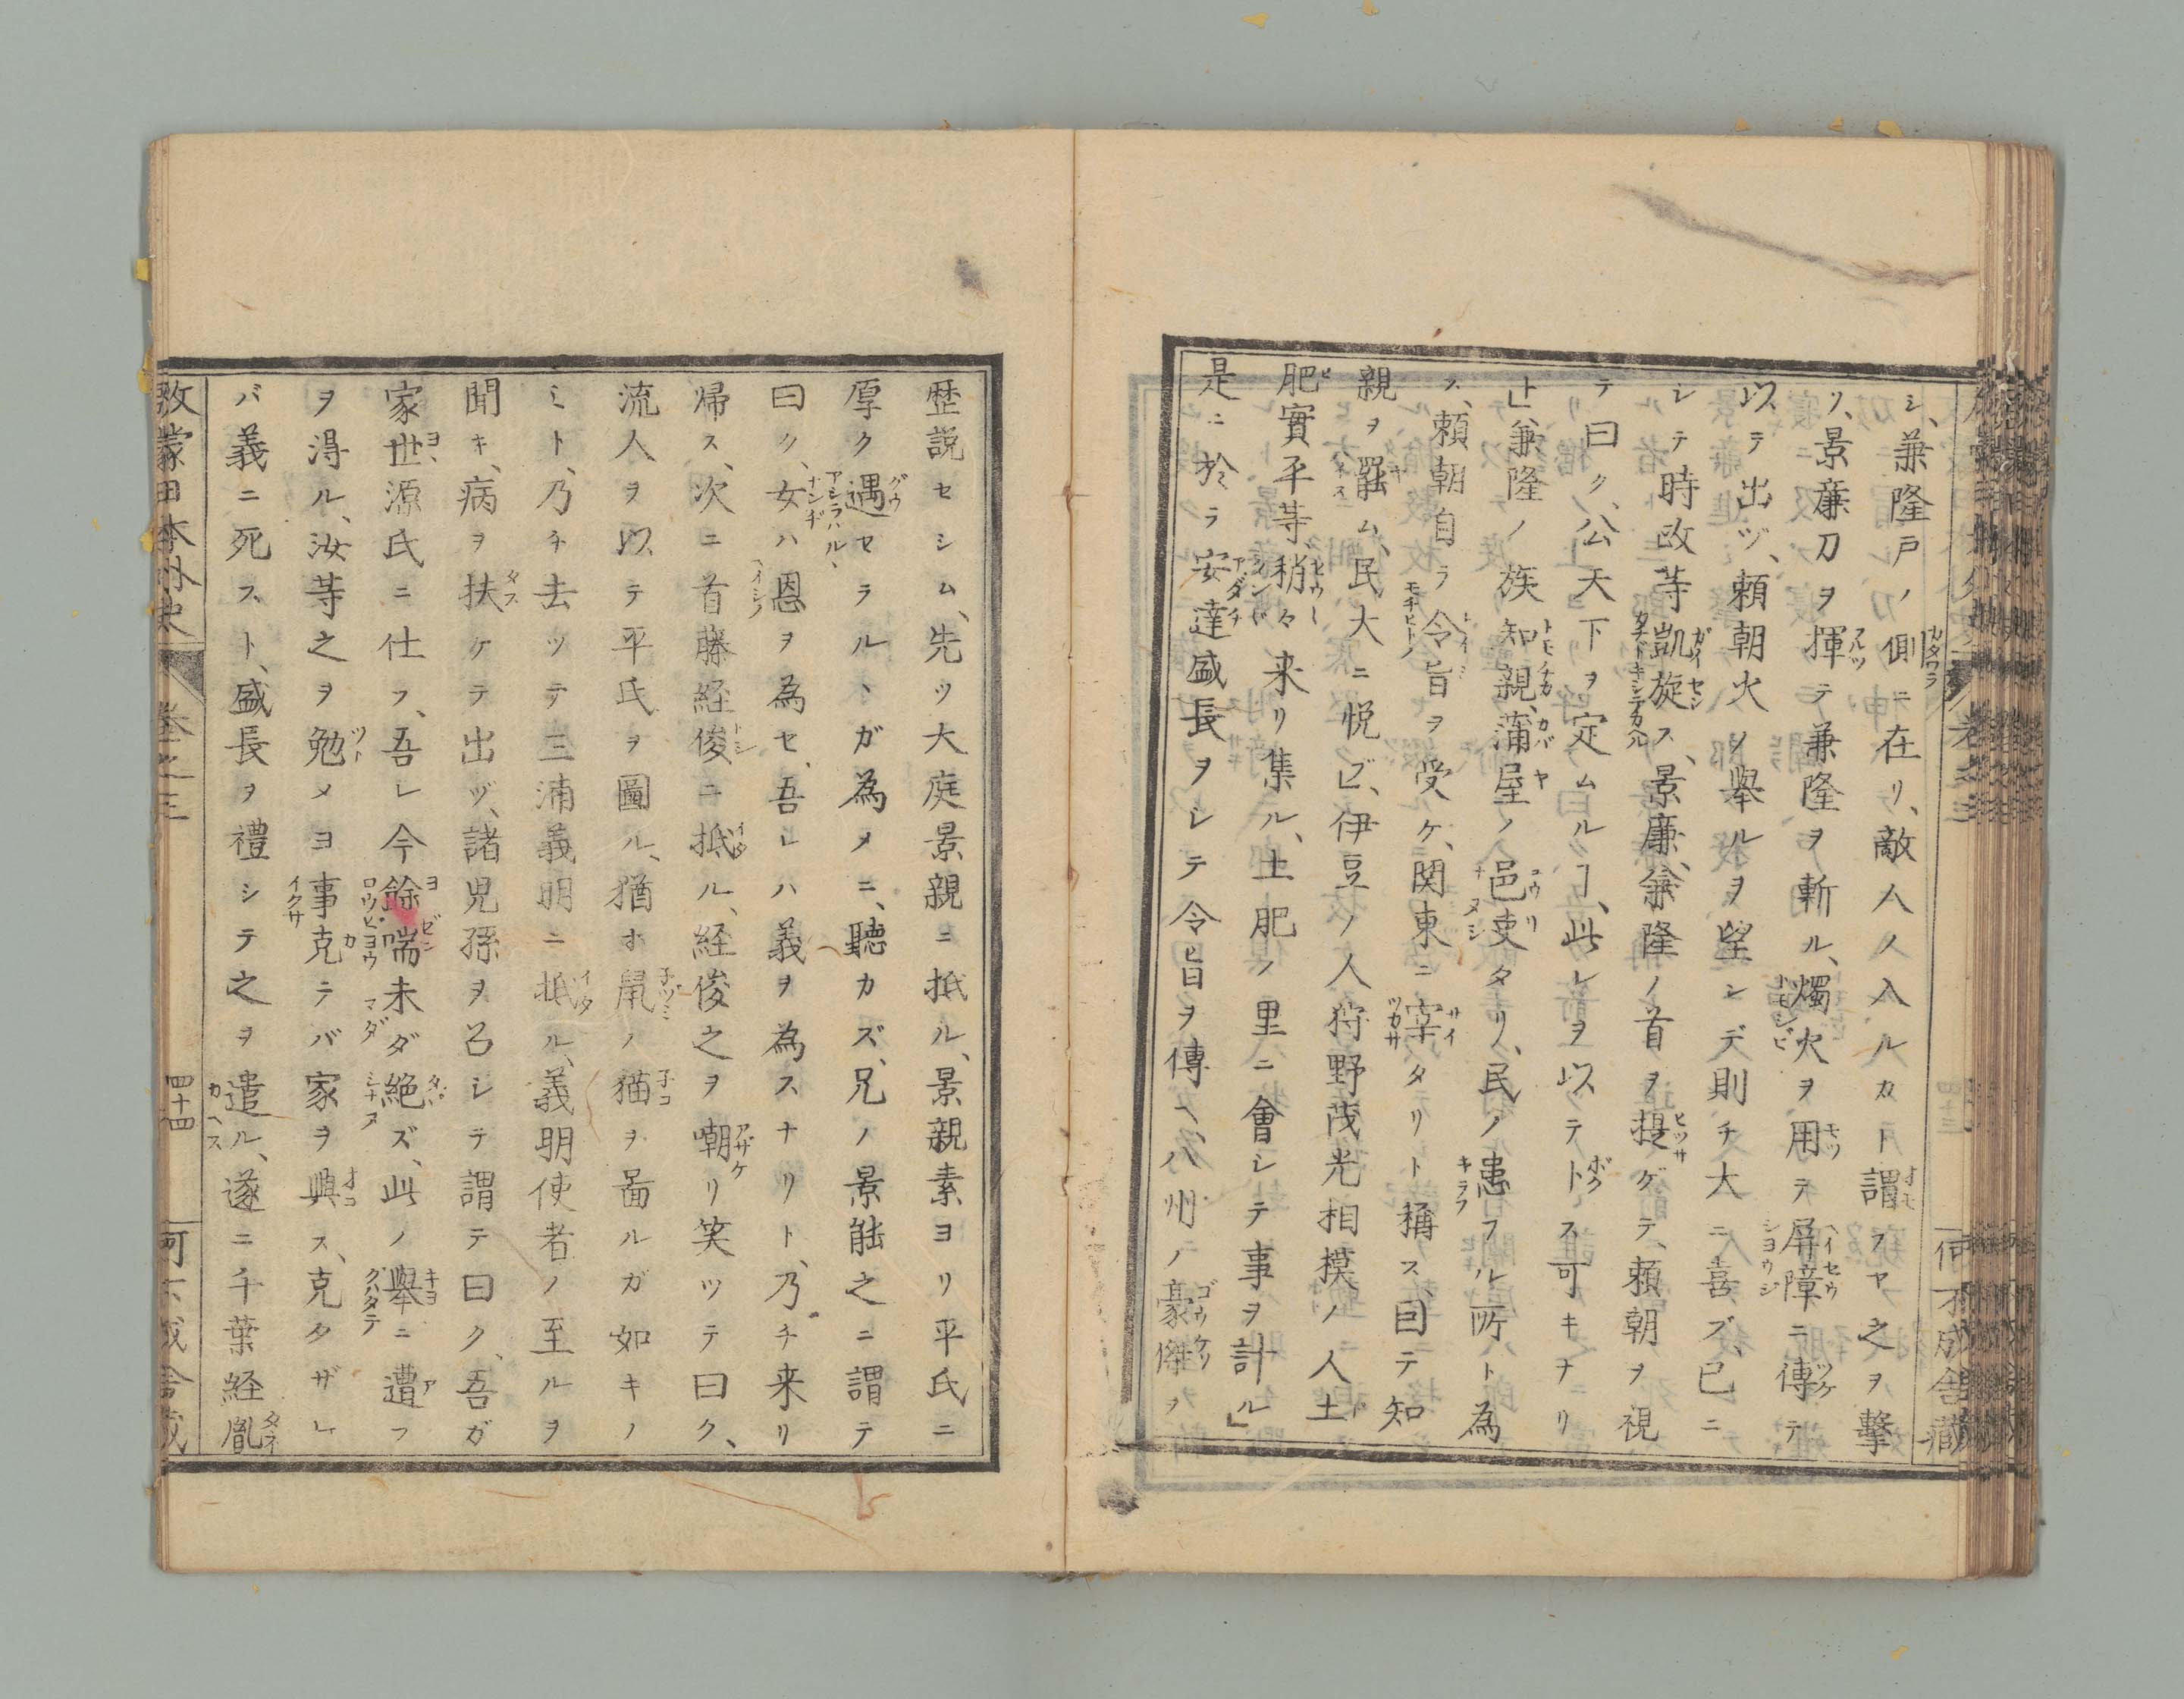 シ、兼隆戸ノ側ニ在リ、敵人ノ入ルカト謂フヤ之ヲ擊
リ、景廉刀ヲ揮テ兼隆ヲ斬ル、燭火ヲ用テ屏障ニ傳テ
以テ出ヅ、頼朝火ノ擧ルヲ望ンデ則チ大ニ喜ブ、已ニ
シテ時政等凱旋ス、景廉、兼隆ノ首ヲ提ゲテ、頼朝ヲ視
テ曰ク、公天下ヲ定ムルヿ、此レヲ以テトス可キナリ
ト」兼隆ノ族知親、蒲屋ノ邑吏タリ、民ノ患フル所ト為
ス、頼朝自ラ令旨ヲ受ケ、関東ニ宰タリト稱ス、因テ知
親ヲ罷ム、民大ニ悦ビ、伊豆ノ人狩野茂光相摸ノ人土
肥實平等稍々来リ集ル、土肥ノ里ニ會シテ事ヲ計ル」
是ニ於ラ安達盛長ヲシテ令旨ヲ傳ヘ八州ノ豪傑ヲ
歴説セシム、先ツ大庭景親ニ抵ル、景親素ヨリ平氏ニ
厚ク遇セラルヽガ為メニ、聽カズ、兄ノ景能之ニ謂テ
曰ク、女ハ恩ヲ為セ、吾レハ義ヲ為スナリト、乃チ来リ
帰ス、次ニ首藤経俊ニ抵ル、経俊之ヲ嘲リ笑ツテ曰ク、
流人ヲ以テ平氏ヲ圖ル、猶ホ鼠ノ猫ヲ啚ルガ如キノ
ミト、乃チ去ツテ三浦義明ニ抵ル、義明使者ノ至ルヲ
聞キ、病ヲ扶ケテ出ヅ、諸児孫ヲ召シテ謂テ曰ク、吾ガ
家世源氏ニ仕フ、吾レ今餘喘未ダ絶ズ、此ノ擧ニ遭フ
ヲ得ル、汝等之ヲ勉メヨ事克テバ家ヲ興ス、克タザレ
バ義ニ死スト、盛長ヲ禮シテ之ヲ遣ル、遂ニ千葉経胤
啓蒙日本外史 巻之三 四十四 何不成舎蔵